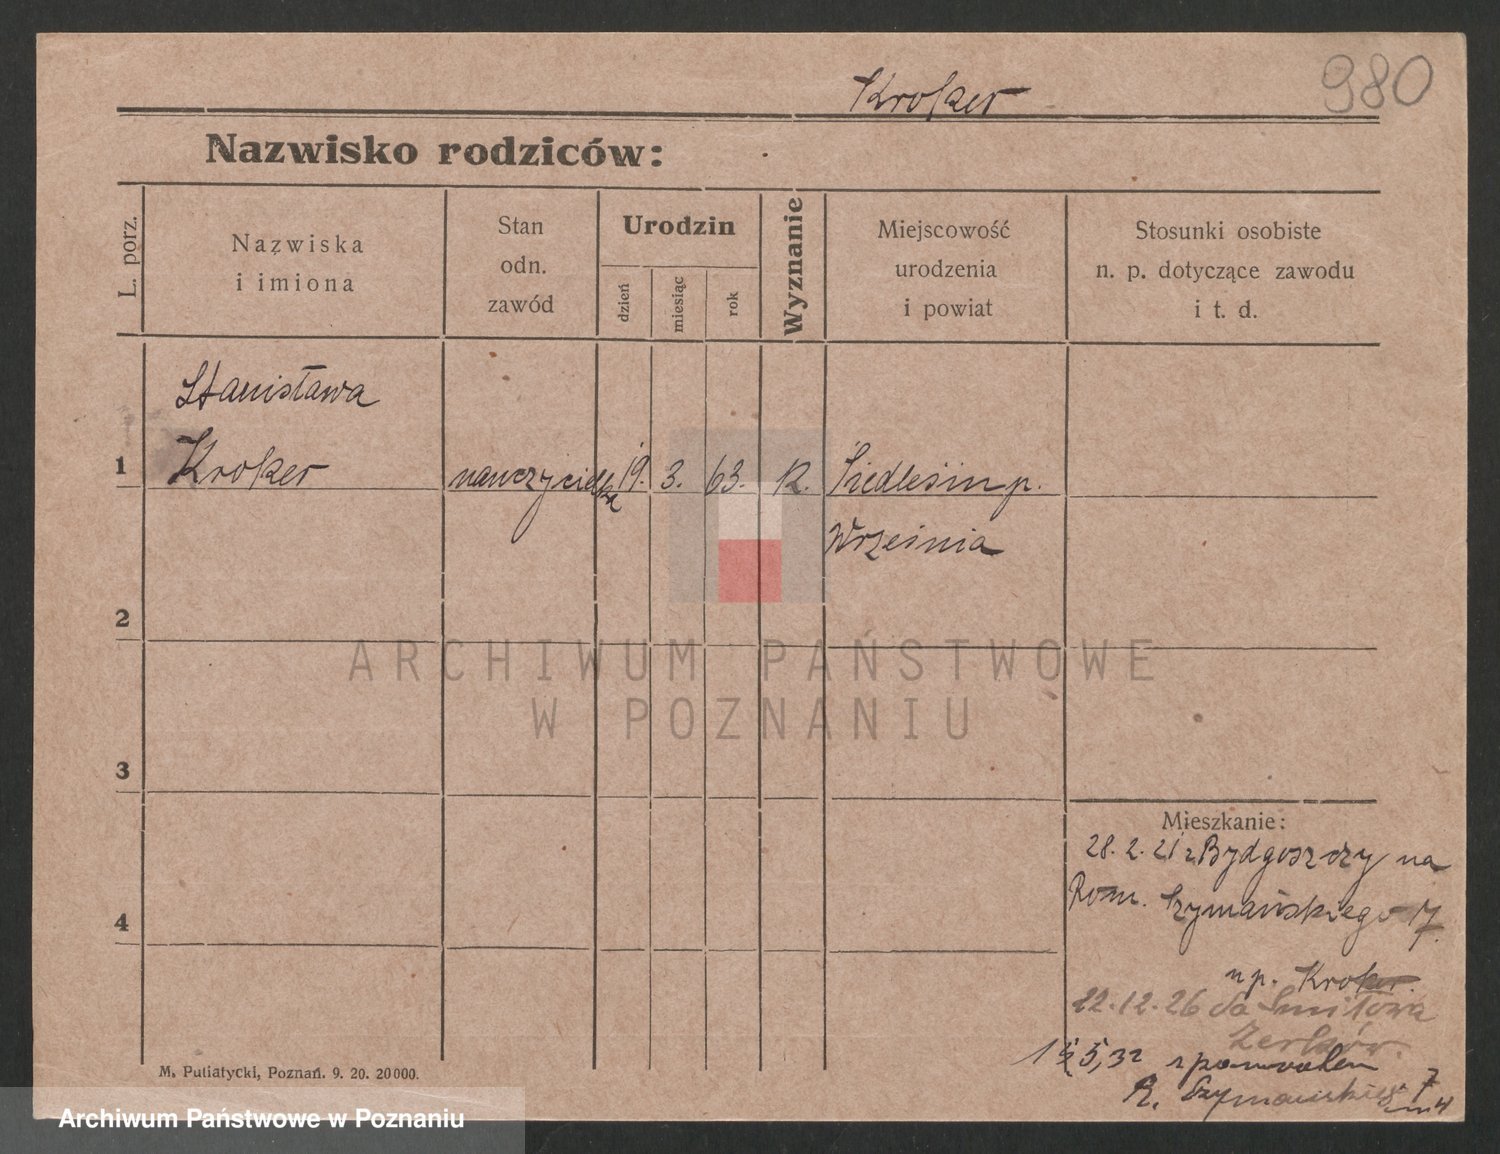 Kroker
980
Nazwisko rodziców:
L. porz.
Nazwiska
i imiona
Stan
odn.
zawód
Urodzin
dzień
miesiąc
rok
Wyznanie
Miejscowość
urodzenia
i powiat
Stosunki osobiste
n. p. dotyczące zawodu
i t. d.
Stanisława
1 Kroker nauczycielka 19. 3. 63. K. Siedlesin p.
Września
2
ARCHIWUM PAŃSTWOWE
W POZNANIU
3
Mieszkanie:
28. 2. 21 z Bydgoszczy na
Rom. Szymańskiego 7.
4
np. Kroker.
22.12.26 do Śmiełowa
Żerków.
5,32 z powrotem
R. Szymańskiego 7
M. Putiatycki, Poznań. 9. 20. 20000.
Archiwum Państwowe w Poznaniu